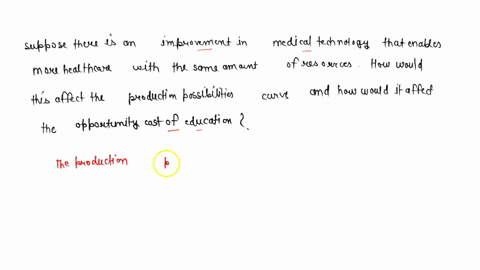 suppose there is an improvement in medical technology that enables
more healthcare with the same amount of resources. How would
this affect the production possibilities curve and how would it affect
the opportunity cost of education ?
The production p